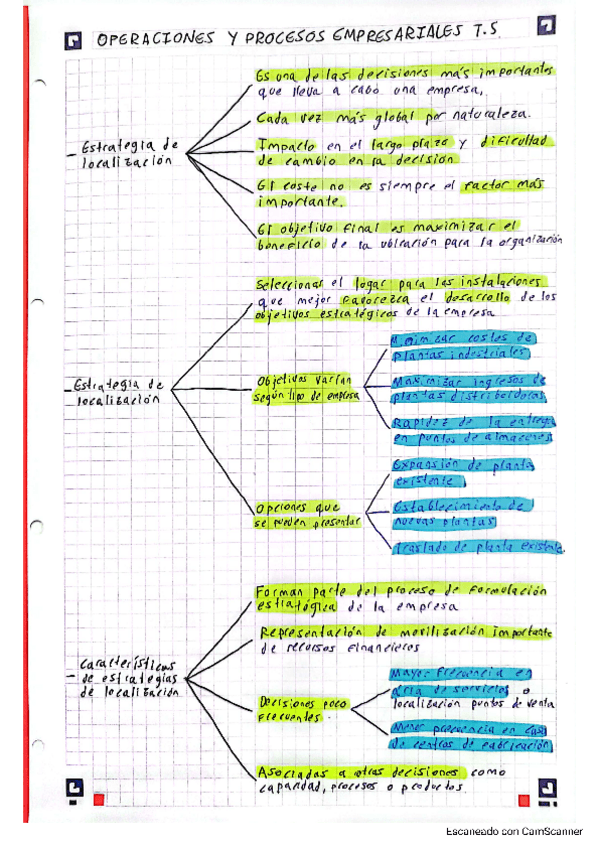 OPERACIONES Y PROCESOS EMPRESARIALES T.5
Es una de las decisiones más importantes
que lleva a cabo una empresa,
Cada vez más global por naturaleza.
- Estrategia de
localización
Impacto en el largo plazo y dificultad
de cambio en la decisión
El coste no es siempre el factor más
importante.
El objetivo final es maximizar el
beneficio de la ubicación para la organización
Seleccionar el logar para las instalaciones
que mejor favorezca el desarrollo de los
objetivos estratégicos de la empresa
- Estrategia de
localización
Objetivos varían
según tipo de empresa
Minimizar costes de
plantas industriales
Maximizar ingresos de
plantas distribuidoras
Rapidez de la entrega
en puntos de almacenes
Opciones que
se pueden presentar
Expansión de planta
existente
Establecimiento de
nuevas plantas
Traslado de planta existente.
Forman parte del proceso de formulación
estratégica de la empresa
Representación de movilización importante
de recursos financieros
- Características
de estrategias
de localización
Decisiones poco
frecuentes.
Mayor frecuencia en
área de servicios o
localización puntos de venta
Menor frecuencia en caso
de centros de fabricación
Asociadas a otras decisiones como
capacidad, procesos o productos.
Escaneado con CamScanner